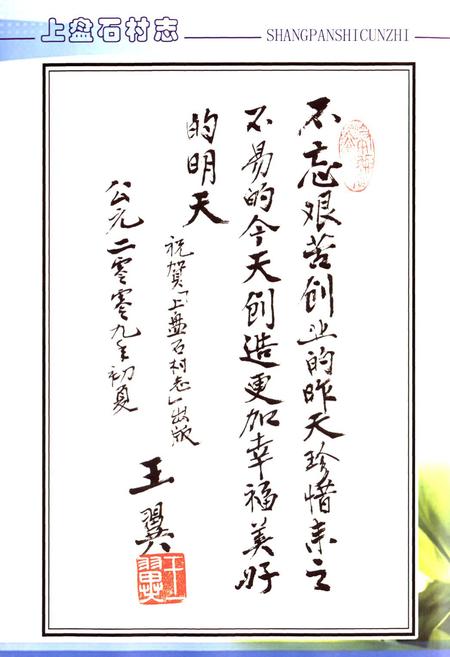 上盘石村志
SHANGPANSHICUNZHI
不忘艰苦创业的昨天珍惜来之
不易的今天创造更加幸福美好
的明天
祝贺「上盘石村志」出版
公元二零零九年初夏
王翼
王翼